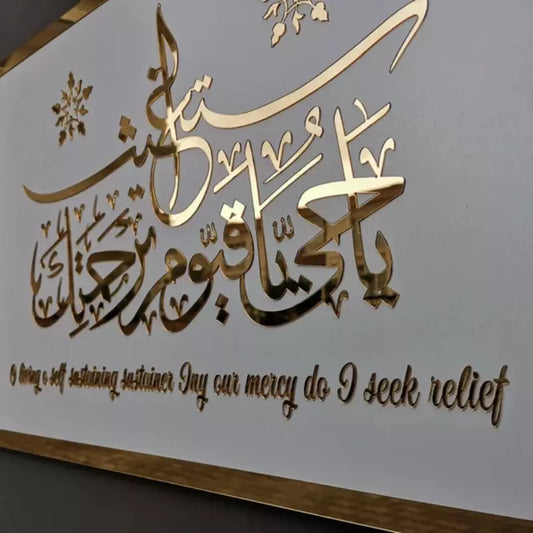 يَا حَيُّ يَا قَيُّومُ بِرَحْمَتِكَ
أَسْتَغِيثُ
O living o self sustaining sustainer Iny our mercy do I seek relief